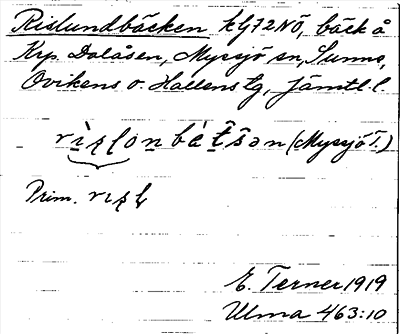 Rislundbäcken kg72NÖ, bäck å
Krp. Dalåsen, Myssjö sn, Sunne,
Ovikens o. Hallens tg, Jämtl. l.
(Myssjö T.)
Prim.
E. Terner 1919
Ulma 463:10